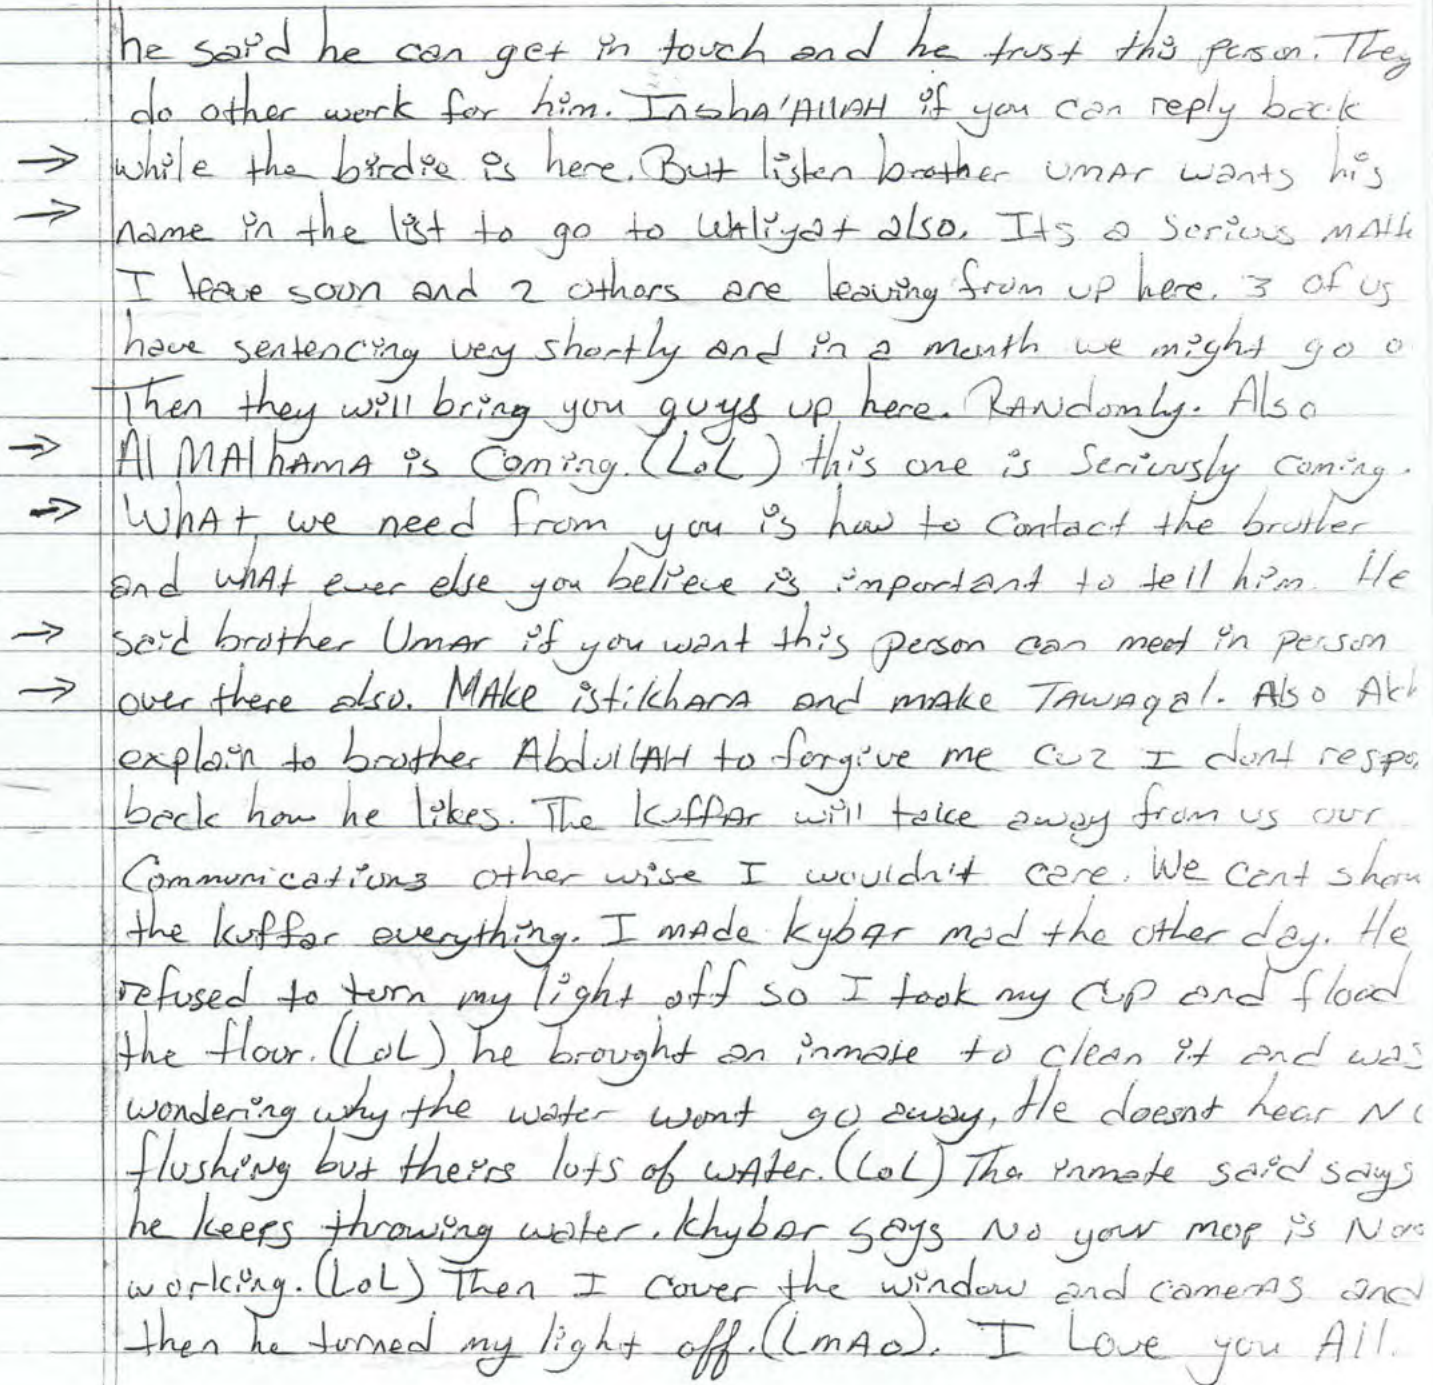 he said he can get in touch and he trust this person. They
do other work for him. InshA'AllAH if you can reply back
→ while the birdie is here. But listen brother UMAr wants his
→ name in the list to go to WAliyat also. Its a Serious
I leave soon and 2 others are leaving from up here. 3 of us
have sentencing very shortly and in a month we might go
Then they will bring you guys up here. RANdomly. Also
→ Al MAlhAmA is Coming. (LoL) this one is Seriously coming.
→ WhAt we need from you is how to Contact the brother
and whAt ever else you believe is important to tell him. He
→ said brother UmAr if you want this person can meet in person
→ over there also. MAke istikhArA and mAke TAwAqal. Also
explain to brother AbdullAH to forgive me cuz I dont
back how he likes. The kuffAr will take away from us our
Communications other wise I wouldn't care. We cant
the kuffar everything. I mAde kybar mad the other day. He
refused to turn my light off so I took my cup and flood
the floor. (LoL) he brought an inmate to clean it and was
wondering why the water wont go away. He doesnt hear
flushing but theirs lots of wAter. (LoL) The inmate said says
he keeps throwing water. Khybar says No your mop is
working. (LoL) Then I cover the window and camerAs and
then he turned my light off. (LmAo). I Love you All.